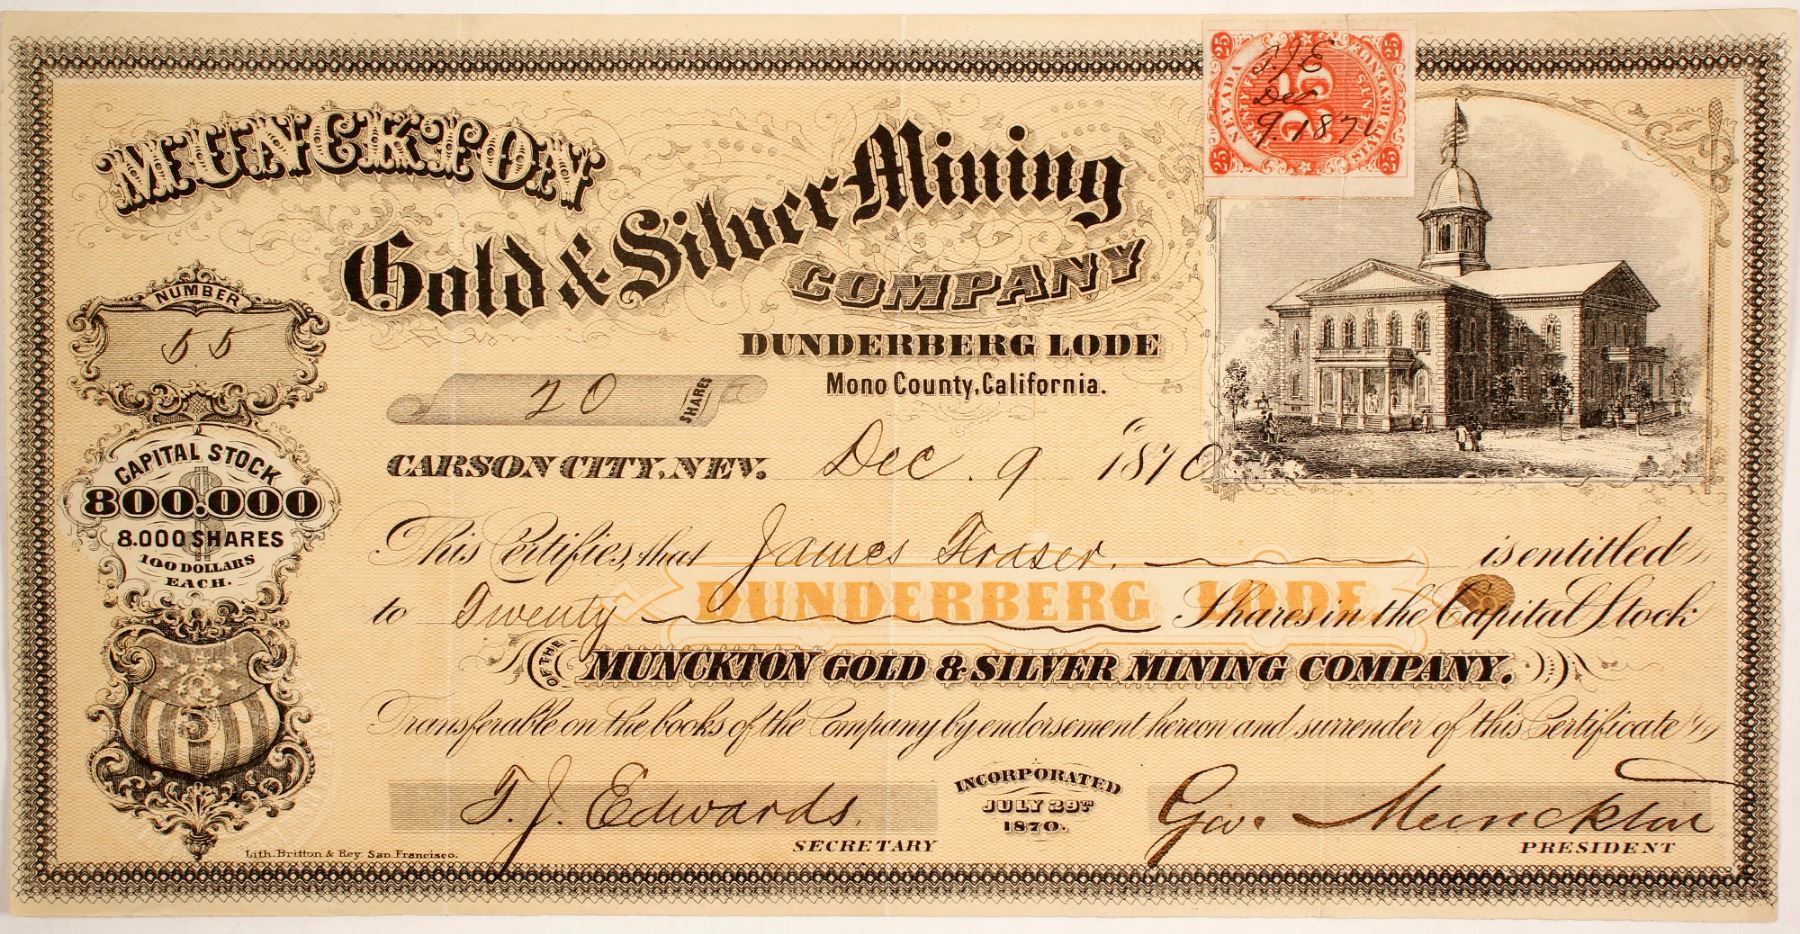 MUNCKTON
Gold & Silver Mining
COMPANY
DUNDERBERG LODE
Mono County, California.
NEVADA
STATE REVENUE
25 25
25
25 25
T J E
Dec
9 1870
NUMBER
55
20 SHARES
CARSON CITY, NEV. Dec. 9 " 1870
CAPITAL STOCK
$
800.000
8.000 SHARES
100 DOLLARS
EACH.
This Certifies, that James Fraser. is entitled
DUNDERBERG LODE
to Twenty Shares in the Capital Stock
OF THE MUNCKTON GOLD & SILVER MINING COMPANY.
Transferable on the books of the Company by endorsement hereon and surrender of this Certificate
T. J. Edwards.
SECRETARY
INCORPORATED
JULY 29TH
1870.
Geo. Munckton
PRESIDENT
Lith. Britton & Rey San Francisco.